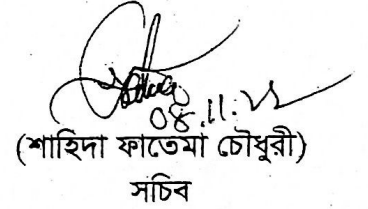 08.11.22
(শাহিদা ফাতেমা চৌধুরী)
সচিব